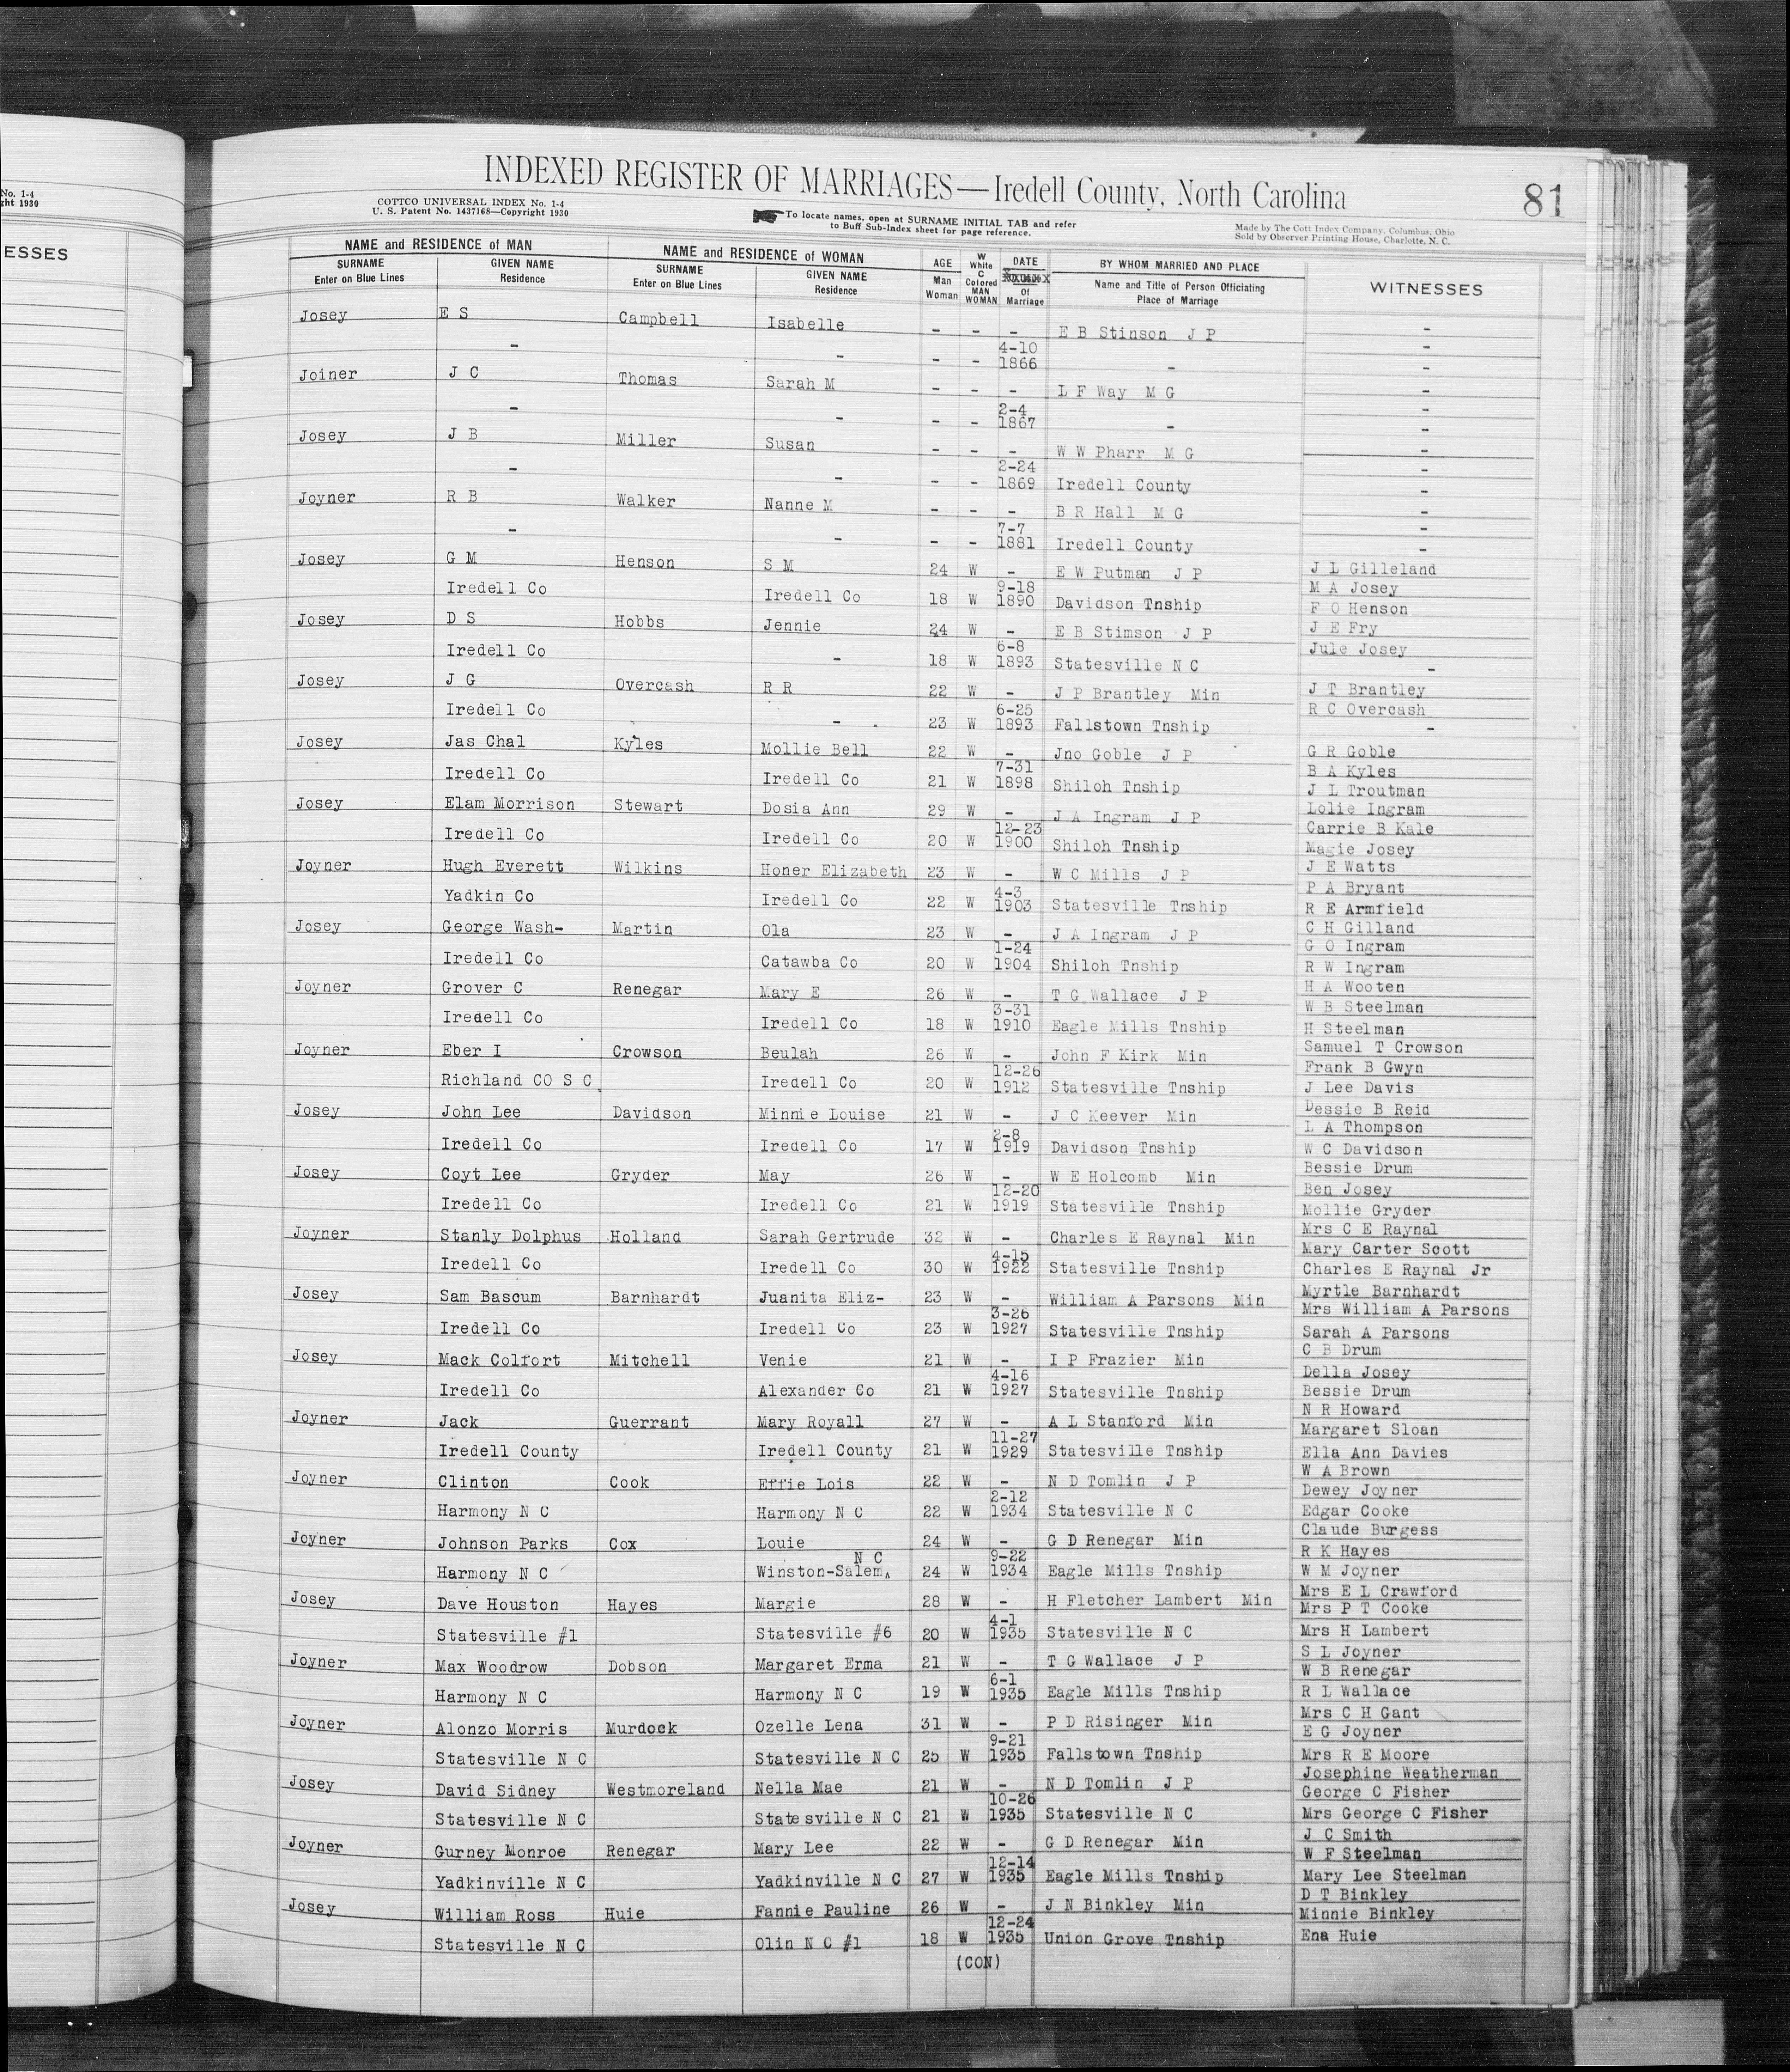 No. 1-4
ght 1930
ESSES
INDEXED REGISTER OF MARRIAGES—Iredell County, North Carolina 81
COTTCO UNIVERSAL INDEX No. 1-4
U. S. Patent No. 1437168—Copyright 1930
To locate names, open at SURNAME INITIAL TAB and refer
to Buff Sub-Index sheet for page reference.
Made by The Cott Index Company, Columbus, Ohio
Sold by Observer Printing House, Charlotte, N. C.
NAME and RESIDENCE of MAN NAME and RESIDENCE of WOMAN AGE W White C Colored DATE BY WHOM MARRIED AND PLACE WITNESSES
SURNAME GIVEN NAME SURNAME GIVEN NAME Man MAN Of Name and Title of Person Officiating
Enter on Blue Lines Residence Enter on Blue Lines Residence Woman WOMAN Marriage Place of Marriage
Josey E S Campbell Isabelle - - - E B Stinson J P -
- - - - 4-10 1866 - - -
Joiner J C Thomas Sarah M - - - L F Way M G -
- - - - 2-4 1867 - - -
Josey J B Miller Susan - - - W W Pharr M G -
- - - - 2-24 1869 Iredell County - -
Joyner R B Walker Nanne M - - - B R Hall M G -
- - - - 7-7 1881 Iredell County - -
Josey G M Henson S M 24 W - E W Putman J P J L Gilleland
M A Josey
Iredell Co Iredell Co 18 W 9-18 1890 Davidson Tnship F O Henson
Josey D S Hobbs Jennie 24 W - E B Stimson J P J E Fry
Jule Josey
Iredell Co - 18 W 6-8 1893 Statesville N C -
Josey J G Overcash R R 22 W - J P Brantley Min J T Brantley
R C Overcash
Iredell Co - 23 W 6-25 1893 Fallstown Tnship -
Josey Jas Chal Kyles Mollie Bell 22 W - Jno Goble J P G R Goble
B A Kyles
Iredell Co Iredell Co 21 W 7-31 1898 Shiloh Tnship J L Troutman
Josey Elam Morrison Stewart Dosia Ann 29 W - J A Ingram J P Lolie Ingram
Carrie B Kale
Iredell Co Iredell Co 20 W 12-23 1900 Shiloh Tnship Magie Josey
Joyner Hugh Everett Wilkins Honer Elizabeth 23 W - W C Mills J P J E Watts
P A Bryant
Yadkin Co Iredell Co 22 W 4-3 1903 Statesville Tnship R E Armfield
Josey George Wash- Martin Ola 23 W - J A Ingram J P C H Gilland
G O Ingram
Iredell Co Catawba Co 20 W 1-24 1904 Shiloh Tnship R W Ingram
Joyner Grover C Renegar Mary E 26 W - T G Wallace J P H A Wooten
W B Steelman
Iredell Co Iredell Co 18 W 3-31 1910 Eagle Mills Tnship H Steelman
Joyner Eber I Crowson Beulah 26 W - John F Kirk Min Samuel T Crowson
Frank B Gwyn
Richland CO S C Iredell Co 20 W 12-26 1912 Statesville Tnship J Lee Davis
Josey John Lee Davidson Minnie Louise 21 W - J C Keever Min Dessie B Reid
L A Thompson
Iredell Co Iredell Co 17 W 2-8 1919 Davidson Tnship W C Davidson
Josey Coyt Lee Gryder May 26 W - W E Holcomb Min Bessie Drum
Ben Josey
Iredell Co Iredell Co 21 W 12-20 1919 Statesville Tnship Mollie Gryder
Joyner Stanly Dolphus Holland Sarah Gertrude 32 W - Charles E Raynal Min Mrs C E Raynal
Mary Carter Scott
Iredell Co Iredell Co 30 W 4-15 1922 Statesville Tnship Charles E Raynal Jr
Josey Sam Bascum Barnhardt Juanita Eliz- 23 W - William A Parsons Min Myrtle Barnhardt
Mrs William A Parsons
Iredell Co Iredell Co 23 W 3-26 1927 Statesville Tnship Sarah A Parsons
Josey Mack Colfort Mitchell Venie 21 W - I P Frazier Min C B Drum
Della Josey
Iredell Co Alexander Co 21 W 4-16 1927 Statesville Tnship Bessie Drum
Joyner Jack Guerrant Mary Royall 27 W - A L Stanford Min N R Howard
Margaret Sloan
Iredell County Iredell County 21 W 11-27 1929 Statesville Tnship Ella Ann Davies
Joyner Clinton Cook Effie Lois 22 W - N D Tomlin J P W A Brown
Dewey Joyner
Harmony N C Harmony N C 22 W 2-12 1934 Statesville N C Edgar Cooke
Joyner Johnson Parks Cox Louie 24 W - G D Renegar Min Claude Burgess
R K Hayes
Harmony N C Winston-Salem N C 24 W 9-22 1934 Eagle Mills Tnship W M Joyner
Josey Dave Houston Hayes Margie 28 W - H Fletcher Lambert Min Mrs E L Crawford
Mrs P T Cooke
Statesville #1 Statesville #6 20 W 4-1 1935 Statesville N C Mrs H Lambert
Joyner Max Woodrow Dobson Margaret Erma 21 W - T G Wallace J P S L Joyner
W B Renegar
Harmony N C Harmony N C 19 W 6-1 1935 Eagle Mills Tnship R L Wallace
Joyner Alonzo Morris Murdock Ozelle Lena 31 W - P D Risinger Min Mrs C H Gant
E G Joyner
Statesville N C Statesville N C 25 W 9-21 1935 Fallstown Tnship Mrs R E Moore
Josey David Sidney Westmoreland Nella Mae 21 W - N D Tomlin J P Josephine Weatherman
George C Fisher
Statesville N C Statesville N C 21 W 10-26 1935 Statesville N C Mrs George C Fisher
Joyner Gurney Monroe Renegar Mary Lee 22 W - G D Renegar Min J C Smith
W F Steelman
Yadkinville N C Yadkinville N C 27 W 12-14 1935 Eagle Mills Tnship Mary Lee Steelman
Josey William Ross Huie Fannie Pauline 26 W - J N Binkley Min D T Binkley
Minnie Binkley
Statesville N C Olin N C #1 18 W 12-24 1935 Union Grove Tnship Ena Huie
(CON)